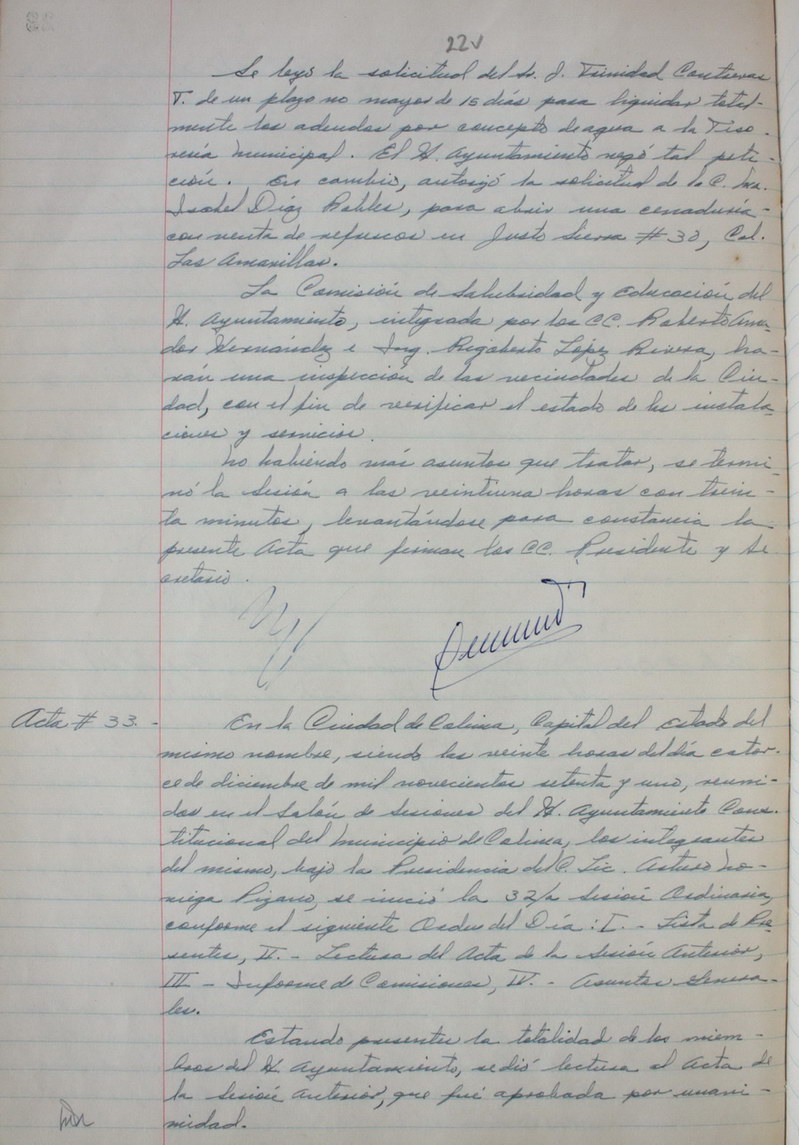 22v
Se leyó la solicitud del Sr. J. Trinidad Contreras
T. de un plazo no mayor de 15 días para liquidar total-
mente los adeudos por concepto de agua a la Teso-
rería Municipal. El H. Ayuntamiento negó tal peti-
ción. En cambio, autorizó la solicitud de la C. Ma.
Isabel Díaz Robles, para abrir una cenaduría
con venta de refrescos en Justo Sierra # 30, Col.
Las Amarillas.
La Comisión de Salubridad y Educación del
H. Ayuntamiento, integrada por los CC. Roberto Ama-
dor Hernández e Ing. Rigoberto López Rivera, ha-
rán una inspección de las vecindades de la Ciu-
dad, con el fin de verificar el estado de las instala-
ciones y servicios.
No habiendo más asuntos que tratar, se termi-
nó la Sesión a las veintiuna horas con trein-
ta minutos, levantándose para constancia la
presente Acta que firman los CC. Presidente y Se
cretario.
Acta # 33.-
En la Ciudad de Colima, Capital del Estado del
mismo nombre, siendo las veinte horas del día cator-
ce de diciembre de mil novecientos setenta y uno, reuni-
dos en el Salón de Sesiones del H. Ayuntamiento Cons-
titucional del Municipio de Colima, los integrantes
del mismo, bajo la Presidencia del C. Lic. Arturo No-
riega Pizano, se inició la 32/a Sesión Ordinaria,
conforme el siguiente Orden del Día: I.- Lista de Pre
sentes, II.- Lectura del Acta de la Sesión Anterior,
III - Informe de Comisiones, IV.- Asuntos Genera-
les.
Estando presentes la totalidad de los miem-
bros del H. Ayuntamiento, se dió lectura al Acta de
la Sesión Anterior, que fué aprobada por unani-
midad.